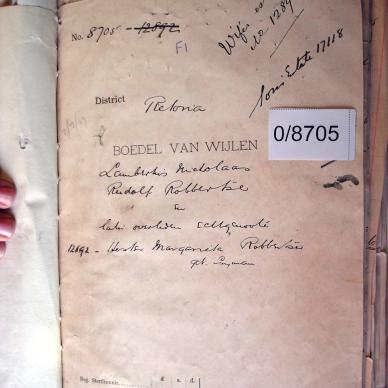 No. 8705 - 12892
F1
Wife's es
No. 1289
Son's Estate 17118
District
Pretoria
0/8705
BOEDEL VAN WIJLEN
Lambertus Nicholaas
Rudolf Robbertse
en
later overleden echtgenoote
12892 - Hester Margarita Robbertse
geb. Snyman
Reg. Sterfkennis
£ s. d.